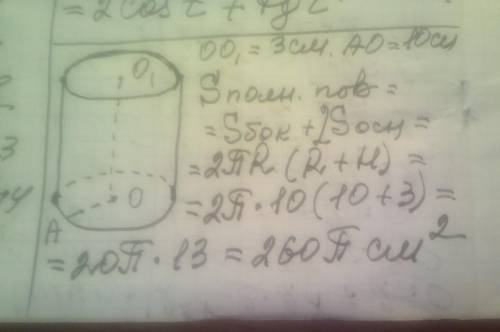 = 2cos t + tg t
OO₁ = 3см. AO = 10см
Sполн. пов =
= Sбок + 2Sосн =
= 2πR (R + H) =
= 2π · 10 (10 + 3) =
= 20π · 13 = 260π см²
O₁
O
A
3